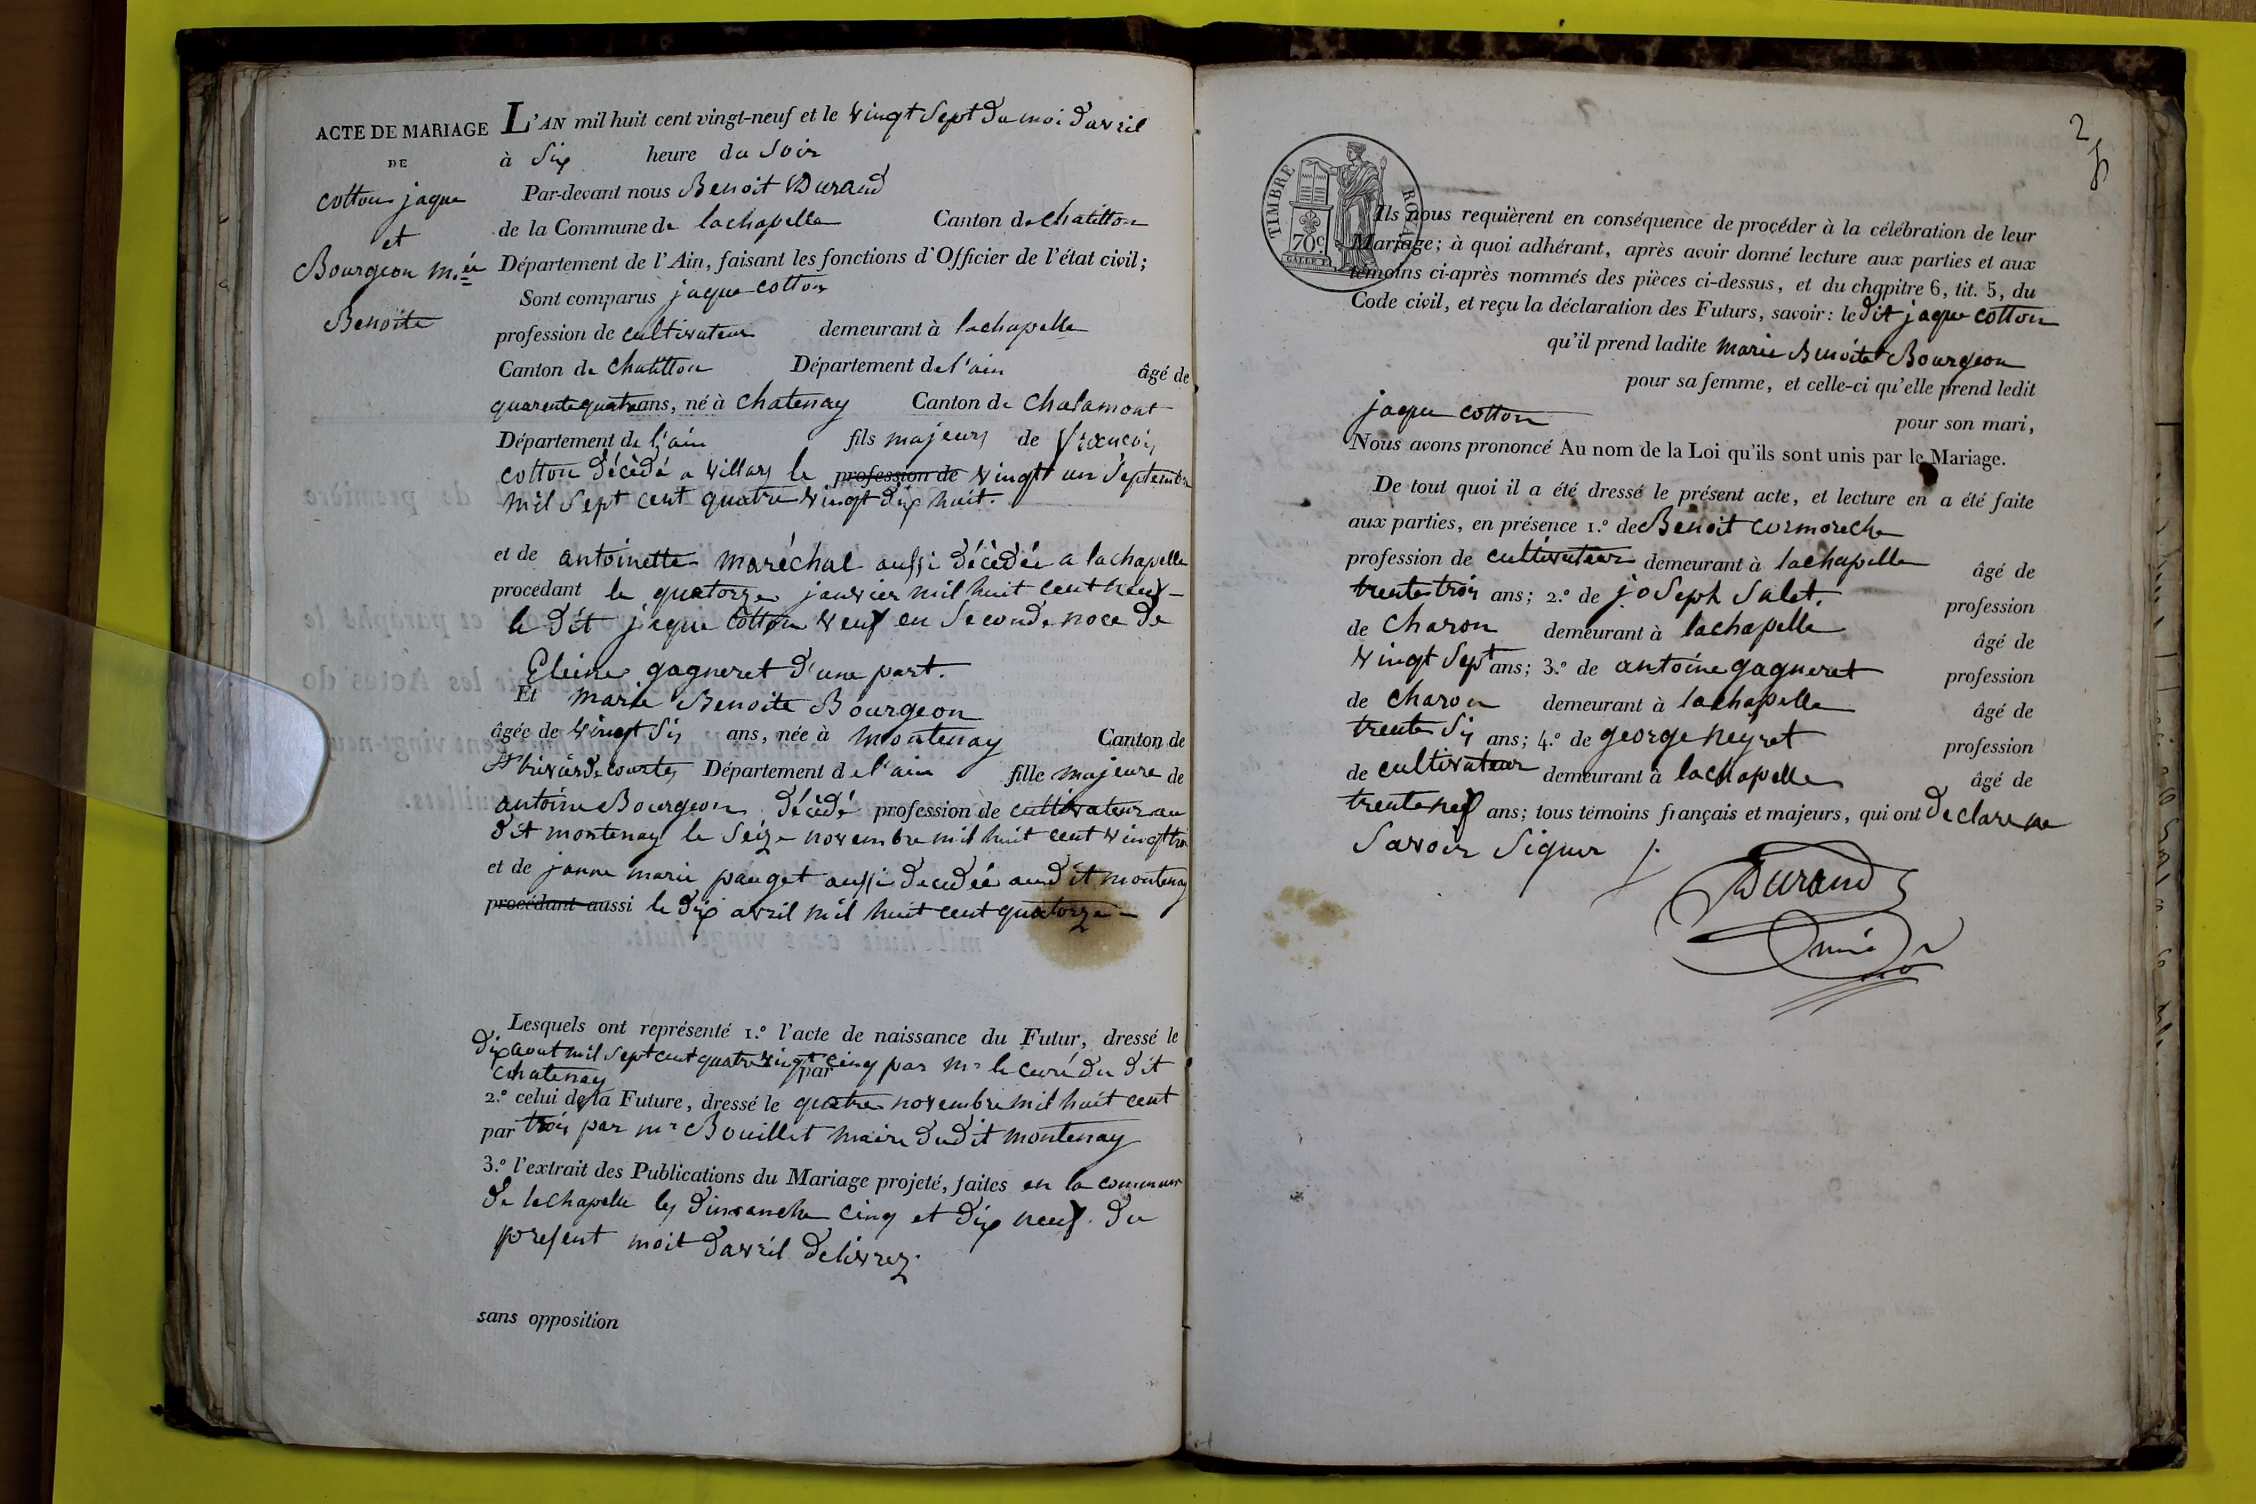 ACTE DE MARIAGE
DE
cotton jaque
et
Bourgeon m.ie
Benoite
L'AN mil huit cent vingt-neuf et le vingt sept du moi davril
à six heure du soir
Par-devant nous Benoit Durand
de la Commune de lachapelle Canton de chatitton
Département de l'Ain, faisant les fonctions d'Officier de l'état civil;
Sont comparus jaque cotton
profession de cultivateur demeurant à lachapelle
Canton de chatitton Département de l'ain âgé de
quarente quatre ans, né à chatenay Canton de chalamont
Département de l'ain fils majeurs de françois
cotton décédé a villars le profession de vingtt un septembre
mil sept cent quatre vingt dix huit.
et de antoinette maréchal aussi décédée a lachapelle
procédant le quatorze janvier mil huit cent neuf
le dit jaque cotton veuf en seconde noce de
Eleine gagneret d'une part.
Et marie Benoite Bourgeon
âgée de vingt six ans, née à montenay Canton de
st trivier de courtes Département de l'ain fille majeure de
antoine Bourgeon décédé profession de cultivateur au
dit montenay le seize novembre mil huit cent vingttroi
et de janne marie pauget aussi decedée audit montenay
procédant aussi le dix avril mil huit cent quatorze
Lesquels ont représenté 1.º l'acte de naissance du Futur, dressé le
dix aout mil sept cent quatre vingt cinq par mr le curé du dit
chatenay par
2.º celui de la Future, dressé le quatre novembre mil huit cent
par trois par mr Bouillet maire dudit montenay
3.º l'extrait des Publications du Mariage projeté, faites en la commune
de lachapelle les dimanche cinq et dix neuf du
present moit davril delivrez.
sans opposition
2
TIMBRE ROYAL
70c
Ils nous requièrent en conséquence de procéder à la célébration de leur
Mariage; à quoi adhérant, après avoir donné lecture aux parties et aux
témoins ci-après nommés des pièces ci-dessus, et du chapitre 6, tit. 5, du
Code civil, et reçu la déclaration des Futurs, savoir: le dit jaque cotton
qu'il prend ladite marie Benoite Bourgeon
pour sa femme, et celle-ci qu'elle prend ledit
jaque cotton pour son mari,
Nous avons prononcé Au nom de la Loi qu'ils sont unis par le Mariage.
De tout quoi il a été dressé le présent acte, et lecture en a été faite
aux parties, en présence 1.º de Benoit cormoreche
profession de cultivateur demeurant à lachapelle âgé de
trente trois ans; 2.º de joseph salet. profession
de charon demeurant à lachapelle âgé de
vingt sept ans; 3.º de antoine gagneret profession
de charon demeurant à lachapelle âgé de
trente six ans; 4.º de george neyret profession
de cultivateur demeurant à lachapelle âgé de
trente nef ans; tous témoins français et majeurs, qui ont declare ne
savoir signer
Durand